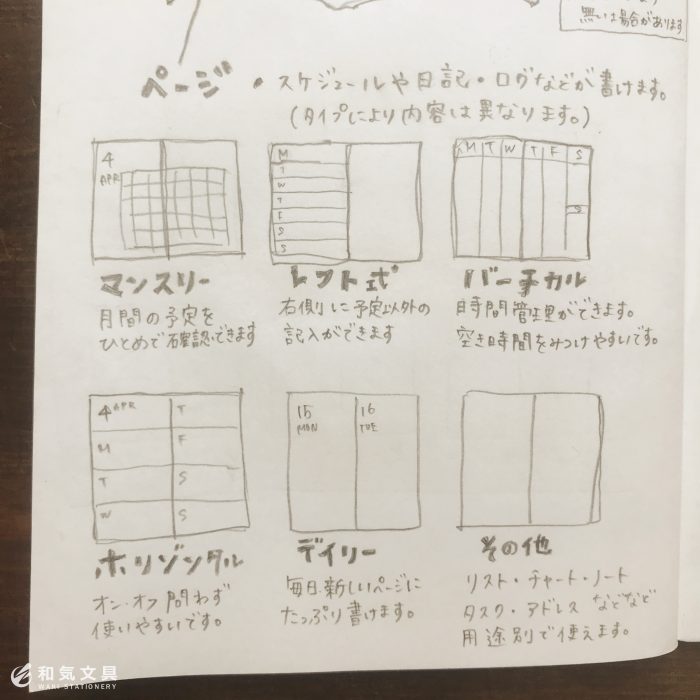 無い場合があります
ページ ・スケジュールや日記・ログなどが書けます。
(タイプにより内容は異なります。)
4
APR
M
T
W
T
F
S
S
M T W T F S
S
マンスリー
月間の予定を
ひとめで確認できます
レフト式
右側に予定以外の
記入ができます
バーチカル
時間管理ができます。
空き時間をみつけやすいです。
4 APR T
M F
T S
W S
15 16
MON TUE
ホリゾンタル
オン・オフ問わず
使いやすいです。
デイリー
毎日新しいページに
たっぷり書けます。
その他
リスト・チャート・ノート
タスク・アドレス などなど
用途別で使えます。
和気文具
WAKI STATIONERY